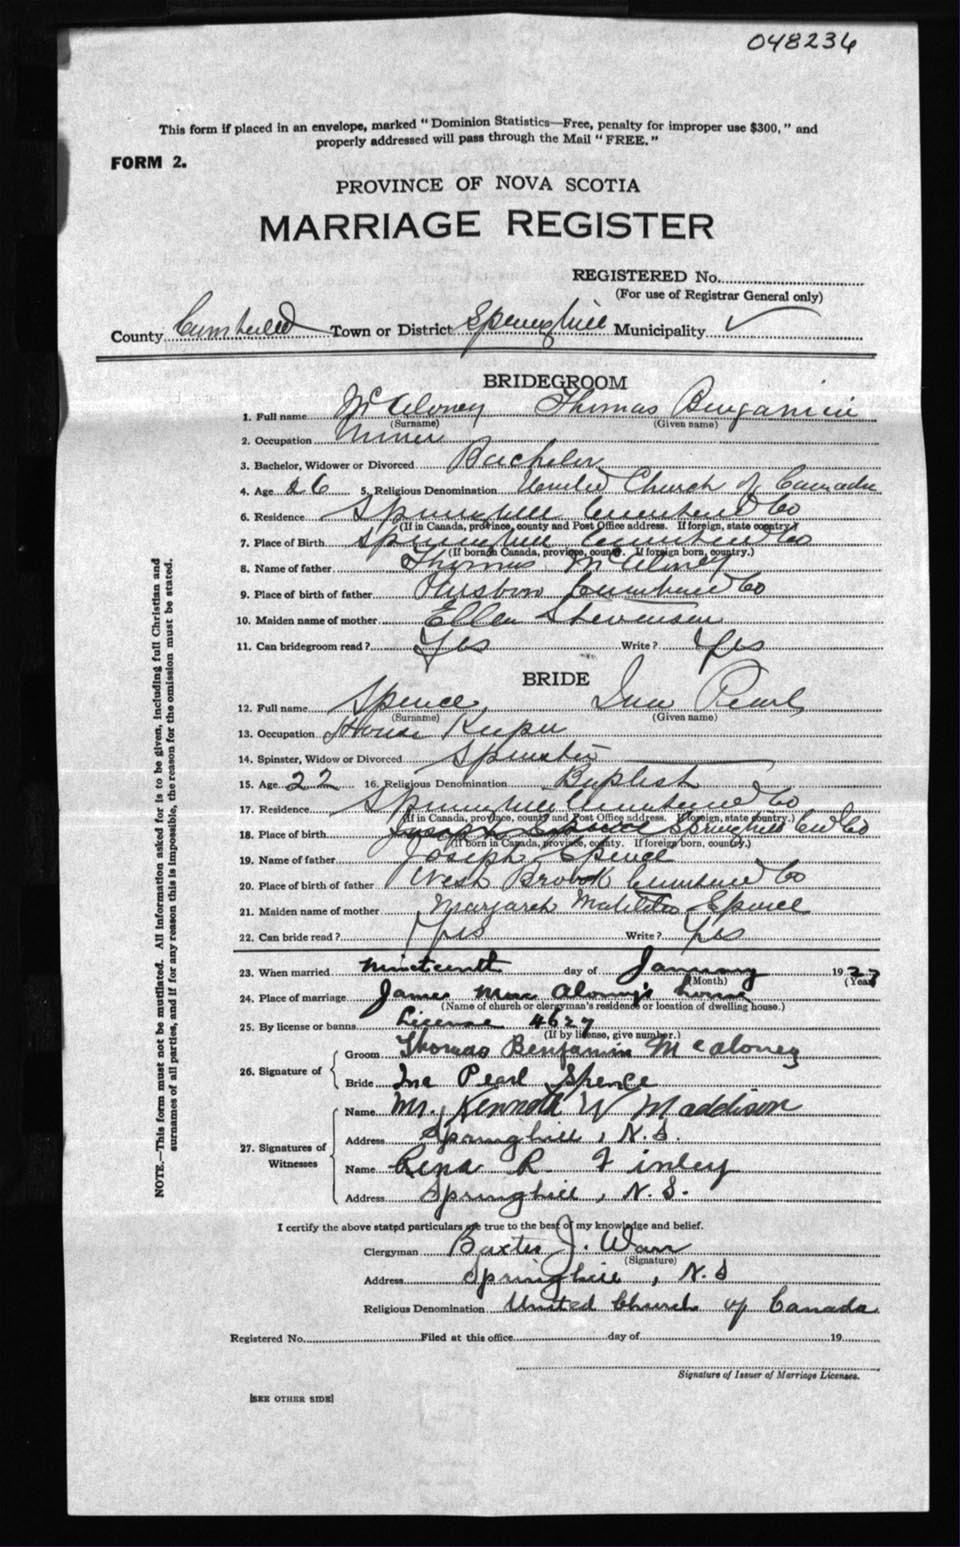 048236
This form if placed in an envelope, marked "Dominion Statistics—Free, penalty for improper use $300," and
properly addressed will pass through the Mail "FREE."
FORM 2.
PROVINCE OF NOVA SCOTIA
MARRIAGE REGISTER
REGISTERED No.
(For use of Registrar General only)
County Cumberland Town or District Springhill Municipality ✓
BRIDEGROOM
1. Full name McAloney Thomas Benjamin
(Surname) (Given name)
2. Occupation Miner
3. Bachelor, Widower or Divorced Bachelor
4. Age 26 5. Religious Denomination United Church of Canada
6. Residence Springhill Cumberland Co
(If in Canada, province, county and Post Office address. If foreign, state country.)
7. Place of Birth Springhill Cumberland Co
(If born in Canada, province, county. If foreign born, country.)
8. Name of father Thomas McAloney
9. Place of birth of father Cumberland Co
10. Maiden name of mother Ellen Stevenson
11. Can bridegroom read? Yes Write? Yes
BRIDE
12. Full name Spence, Ina Pearl
(Surname) (Given name)
13. Occupation House Keeper
14. Spinster, Widow or Divorced Spinster
15. Age 22 16. Religious Denomination Baptist
17. Residence Springhill Cumberland Co
(If in Canada, province, county and Post Office address. If foreign, state country.)
18. Place of birth Joseph Spence Springhill Cu Co
(If born in Canada, province, county. If foreign born, country.)
19. Name of father Joseph Spence
20. Place of birth of father West Brook Cumberland Co
21. Maiden name of mother Margaret Matilda Spence
22. Can bride read? Yes Write? Yes
23. When married nineteenth day of January 19
(Month) (Year)
24. Place of marriage James Mac Aloney's home
(Name of church or clergyman's residence or location of dwelling house.)
25. By license or banns License 4627
(If by license, give number.)
26. Signature of Groom Thomas Benjamin McAloney
Bride Ina Pearl Spence
27. Signatures of Witnesses Name Mr. Kenneth W Maddison
Address Springhill, N.S.
Name Rena R. Finley
Address Springhill, N.S.
I certify the above stated particulars are true to the best of my knowledge and belief.
Clergyman Baxter J. Warr
(Signature)
Address Springhill, N.S
Religious Denomination United Church of Canada
Registered No. Filed at this office day of 19
Signature of Issuer of Marriage Licenses.
[SEE OTHER SIDE]
NOTE.—This form must not be mutilated. All information asked for is to be given, including full Christian and
surnames of all parties, and if for any reason this is impossible, the reason for the omission must be stated.